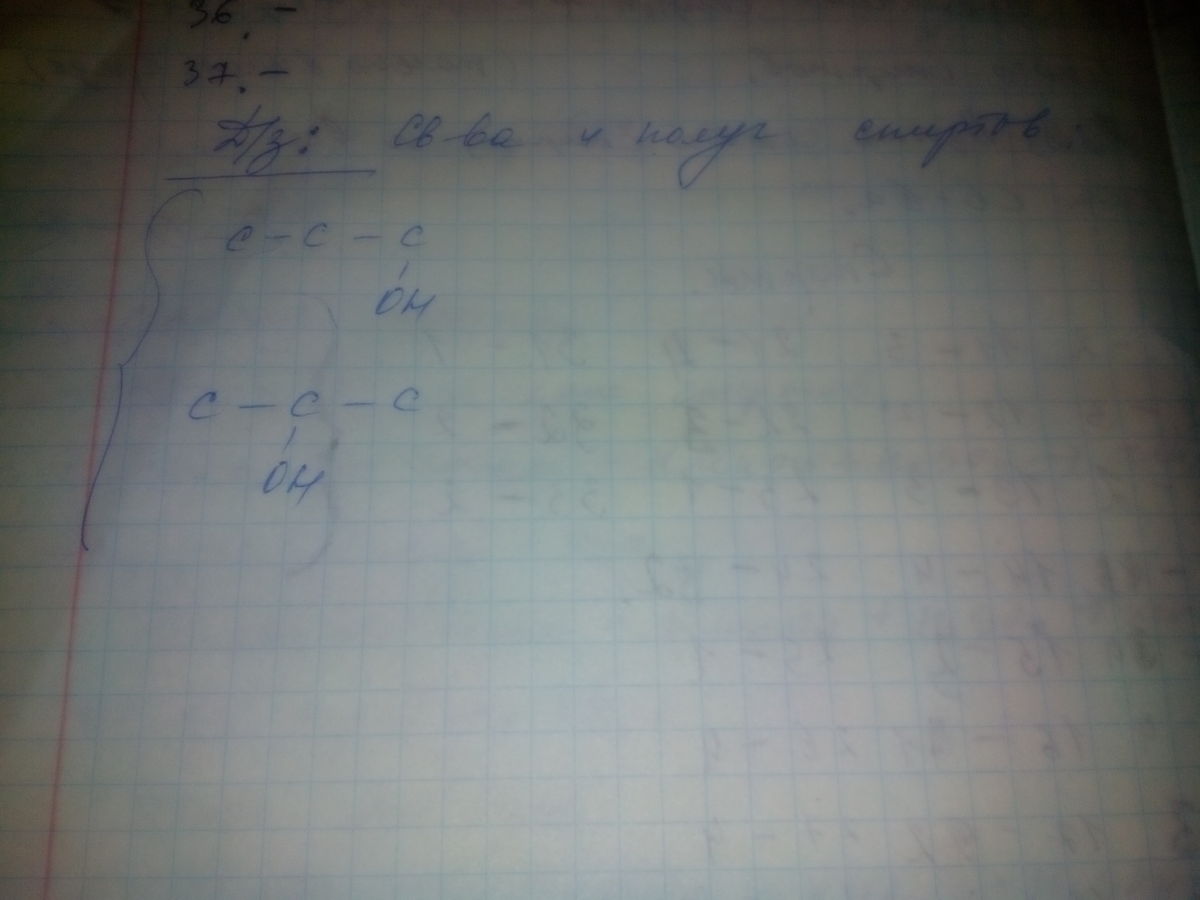 36. -
37. -
Д/з: Св-ва и получ спиртов.
C - C - C
OH
C - C - C
OH